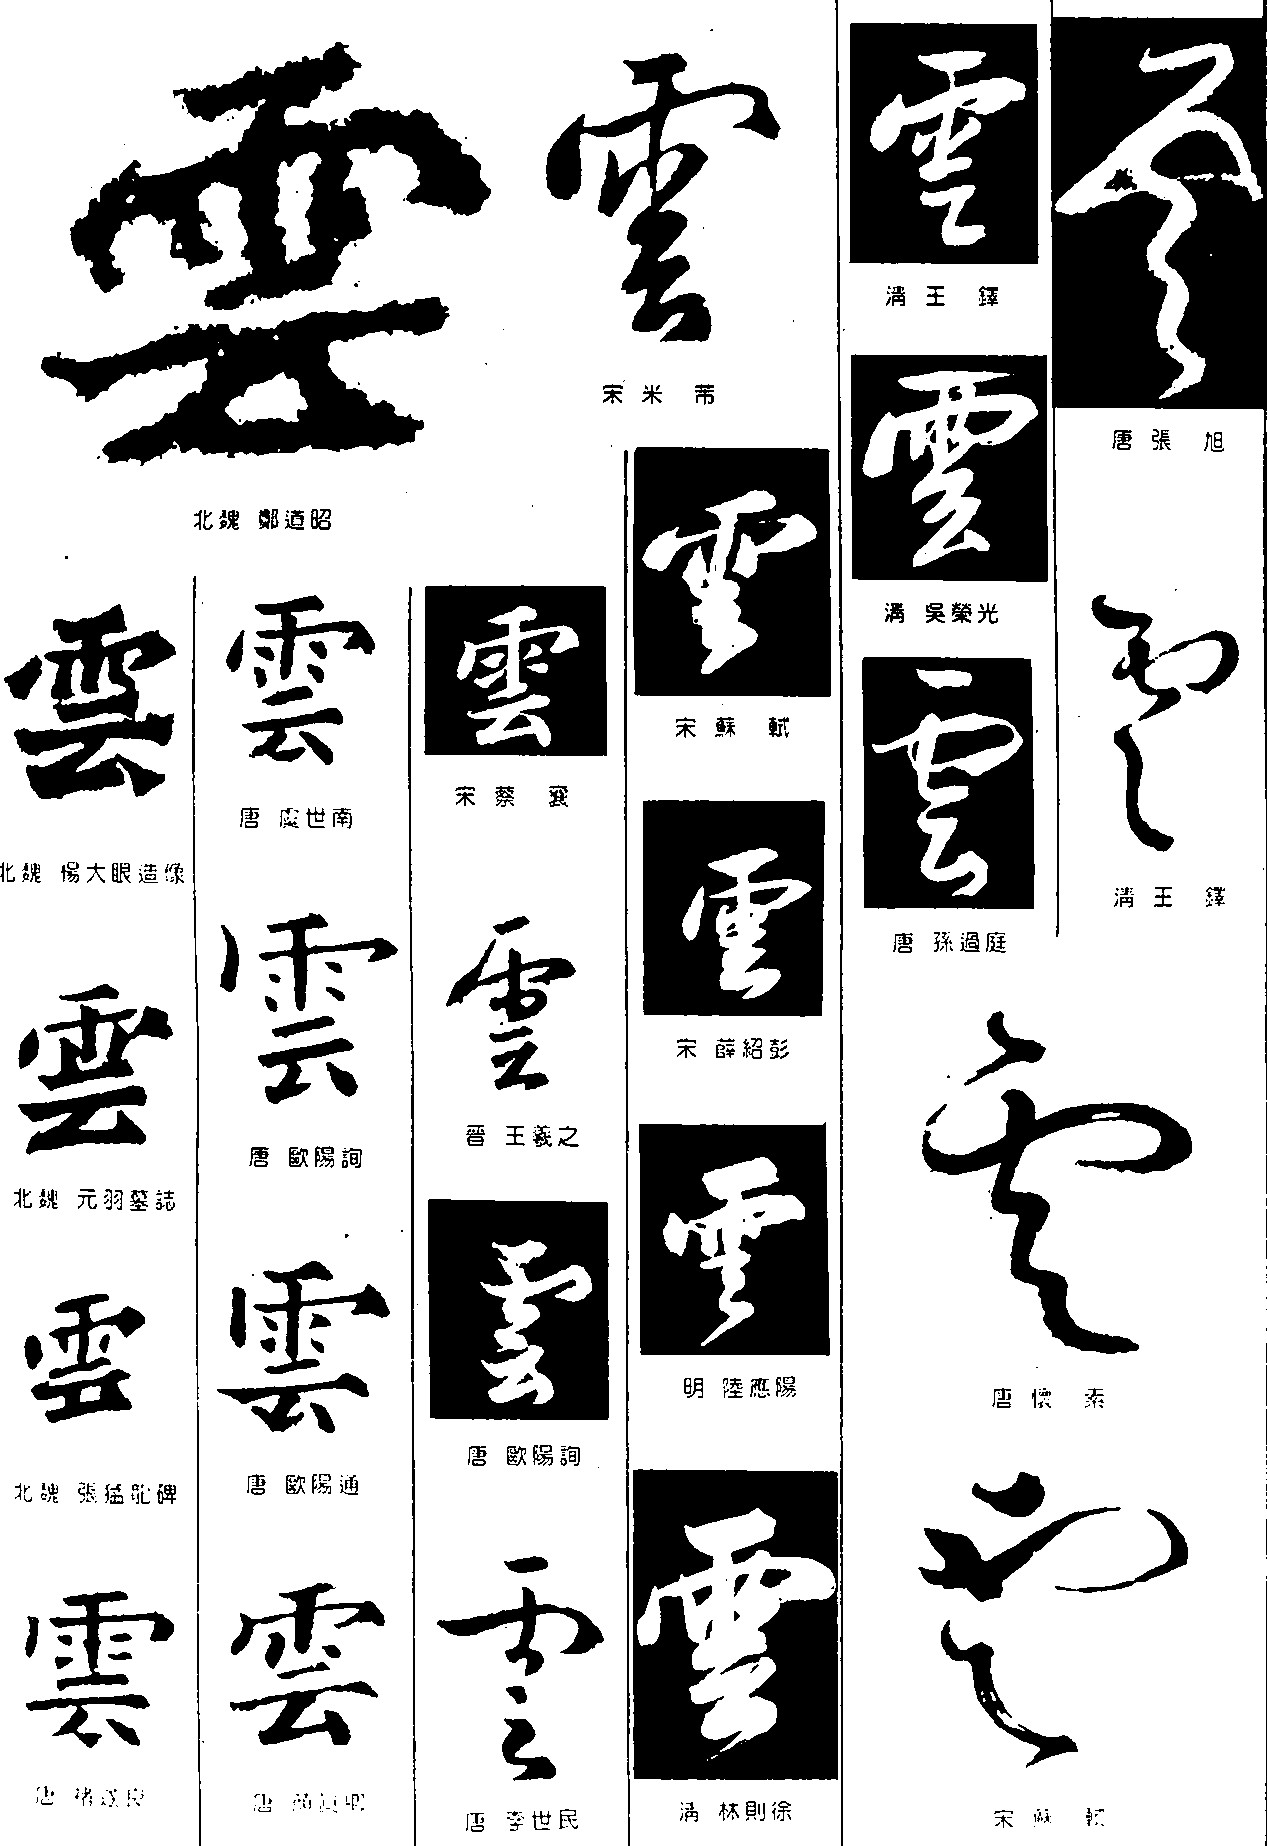 雲
北魏 鄭道昭
雲
北魏 楊大眼造像
雲
北魏 元羽墓誌
雲
北魏 張猛龍碑
雲
唐 褚遂良
雲
唐 虞世南
雲
唐 歐陽詢
雲
唐 歐陽通
雲
唐 顏真卿
雲
宋 米 芾
雲
宋 蔡 襄
雲
晉 王羲之
雲
唐 歐陽詢
雲
唐 李世民
雲
宋 蘇 軾
雲
宋 薛紹彭
雲
明 陸應陽
雲
清 林則徐
雲
清 王 鐸
雲
清 吳榮光
雲
唐 孫過庭
雲
唐 張 旭
雲
清 王 鐸
雲
唐 懷 素
雲
宋 蘇 軾